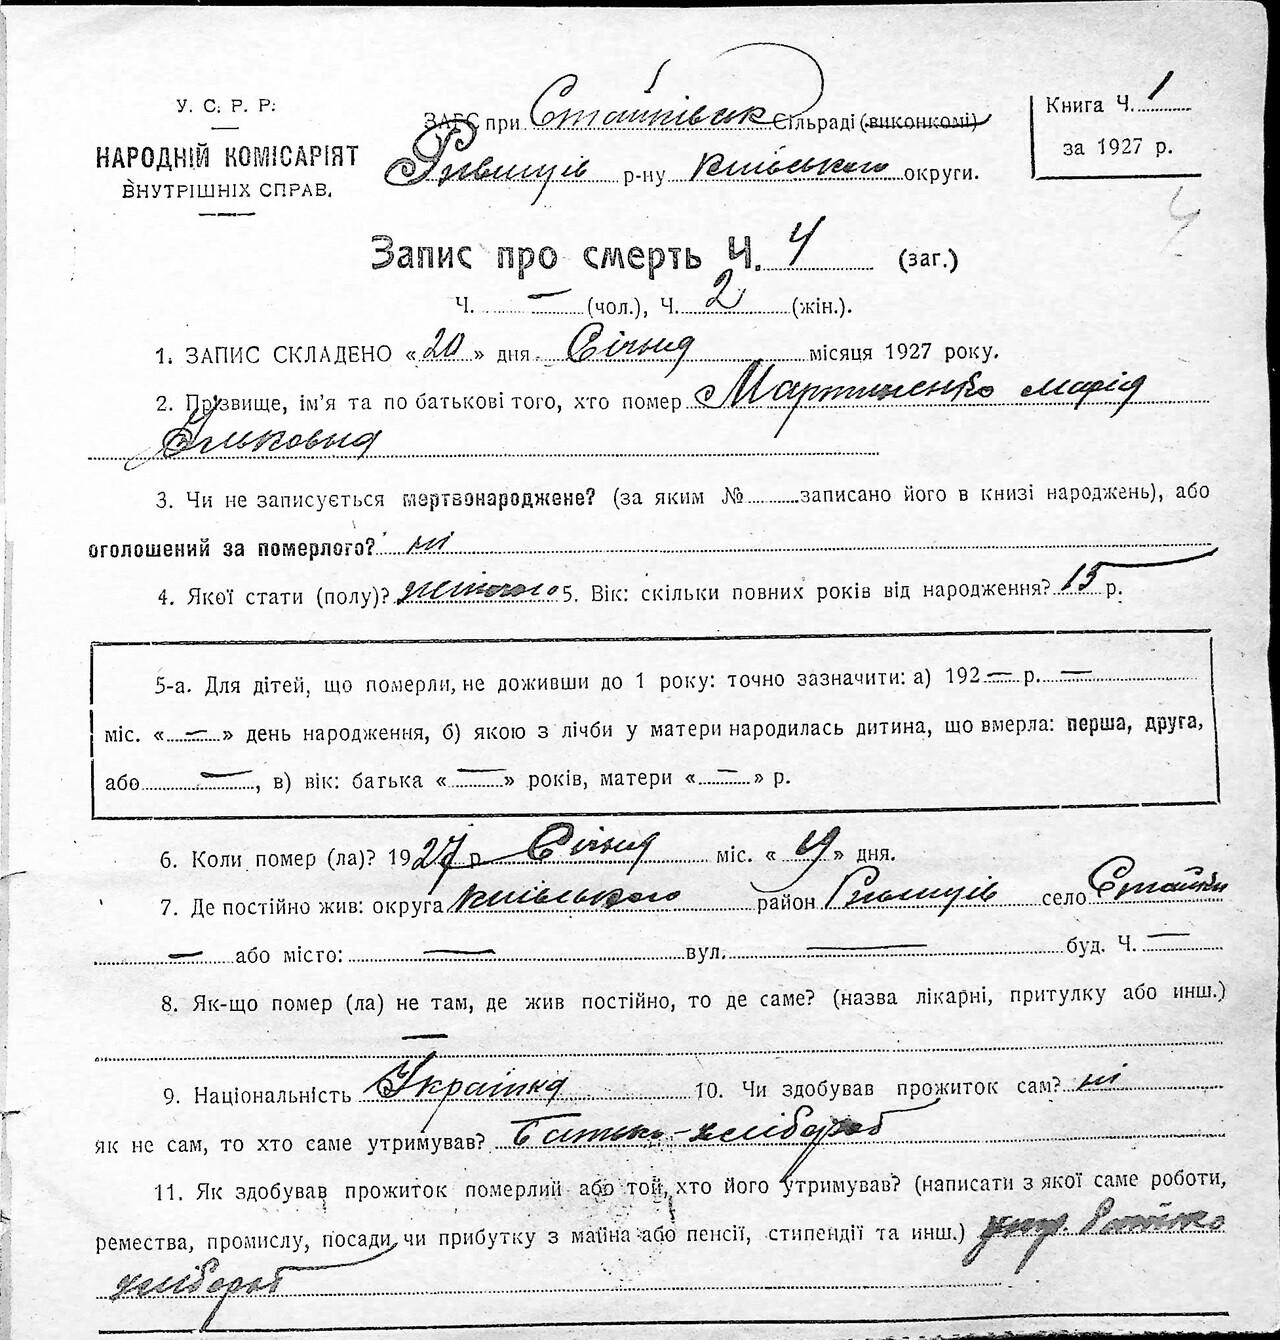 У. С. Р. Р.
НАРОДНІЙ КОМІСАРІЯТ
ВНУТРІШНІХ СПРАВ.
ЗАГС при Стайківськ Сільраді (виконкомі)
Ржищів р-ну Київського округи.
Книга Ч. 1
за 1927 р.
4
Запис про смерть Ч. 4 (заг.)
Ч. — (чол.), Ч. 2 (жін.).
1. ЗАПИС СКЛАДЕНО «20» дня Січня місяця 1927 року.
2. Прізвище, ім'я та по батькові того, хто помер Мартиненко Марія
3. Чи не записується мертвонароджене? (за яким № записано його в книзі народжень), або
оголошений за померлого? ні
4. Якої стати (полу)? жіночого 5. Вік: скільки повних років від народження? 15 р.
5-а. Для дітей, що померли, не доживши до 1 року: точно зазначити: а) 192— р. —
міс. «—» день народження, б) якою з лічби у матери народилась дитина, що вмерла: перша, друга,
або —, в) вік: батька «—» років, матери «—» р.
6. Коли помер (ла)? 1927 р Січня міс. «19» дня.
7. Де постійно жив: округа Київського район Ржищів село Стайки
— або місто: — вул. — буд. Ч. —
8. Як-що помер (ла) не там, де жив постійно, то де саме? (назва лікарні, притулку або инш.)
—
9. Національність Українка 10. Чи здобував прожиток сам? ні
як не сам, то хто саме утримував? Батько-хлібороб
11. Як здобував прожиток померлий або той, хто його утримував? (написати з якої саме роботи,
ремества, промислу, посади, чи прибутку з майна або пенсії, стипендії та инш.) утр. батько
хлібороб